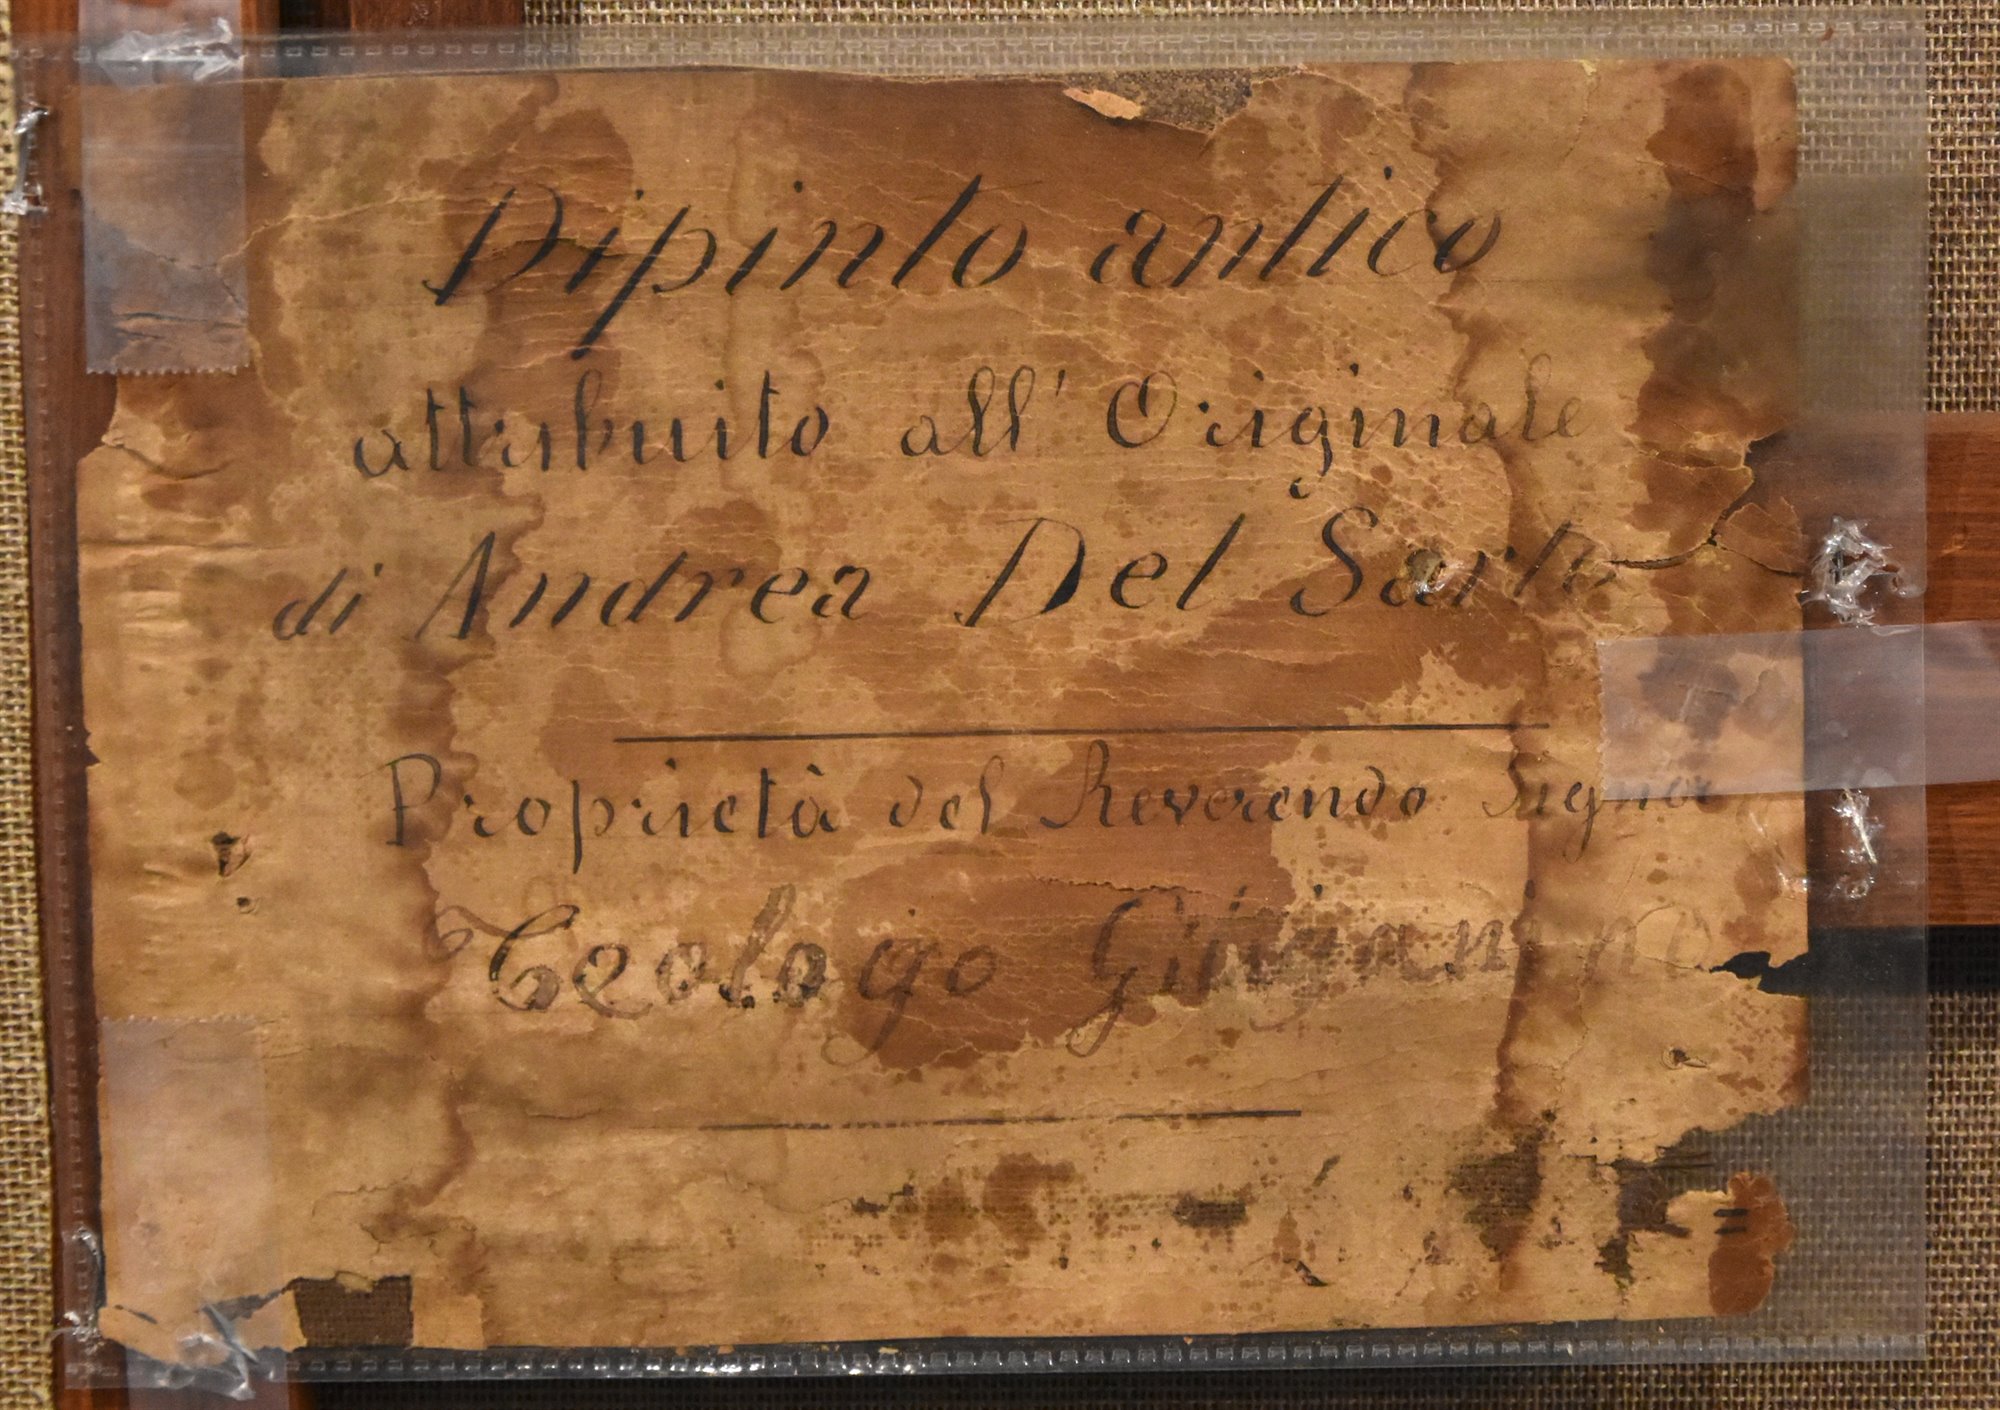 Dipinto antico
attribuito all' Originale
di Andrea Del Sarto
Proprietà del Reverendo Signor
Teologo